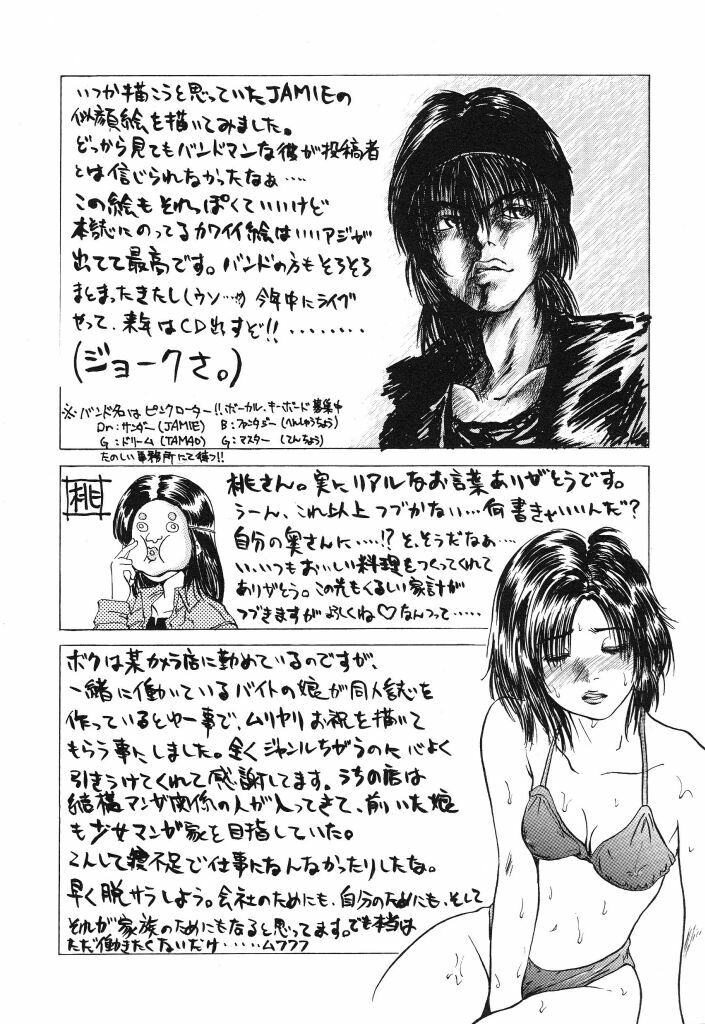 いつか描こうと思っていたJAMIEの
似顔絵を描いてみました。
どっから見てもバンドマンな彼が投稿者
とは信じられなかったなぁ‥‥
この絵もそれっぽくていいけど
本誌にのってるカワイイ絵はいいアジが
出てて最高です。バンドの方もそろそろ
まとまったきたし(ウソ…)今年中にライブ
やって、来年はCD出すぞ!!‥‥‥‥
(ジョークさ。)
※バンド名はピンクローター!!ボーカル、キーボード募集中
Dr:サンダー(JAMIE) B:ファンタジー(へんしゅうちょう)
G:ドリーム(TAMAO) G:マスター(てんちょう)
たのしい事務所にて待つ!!
桃
桃さん。実にリアルなお言葉ありがとうです。
うーん、これ以上つづかない‥‥何書きゃいいんだ?
自分の奥さんに‥‥!?そ、そうだなぁ…
い、いつもおいしい料理をつくってくれて
ありがとう。この先もくるしい家計が
つづきますがよろしくね♡なんつって‥‥‥
ボクは某カメラ店に勤めているのですが、
一緒に働いているバイトの娘が同人誌を
作っているとゆー事で、ムリヤリお祝を描いて
もらう事にしました。全くジャンルちがうのに心よく
引きうけてくれて感謝してます。うちの店は
結構マンガ関係の人が入ってきて、前いた娘
も少女マンガ家を目指していた。
こんして寝不足で仕事になんなかったりしたな。
早く脱サラしよう。会社のためにも、自分のためにも、そして
それが家族のためにもなると思ってます。でも本当は
ただ働きたくないだけ‥‥‥ムフフフ